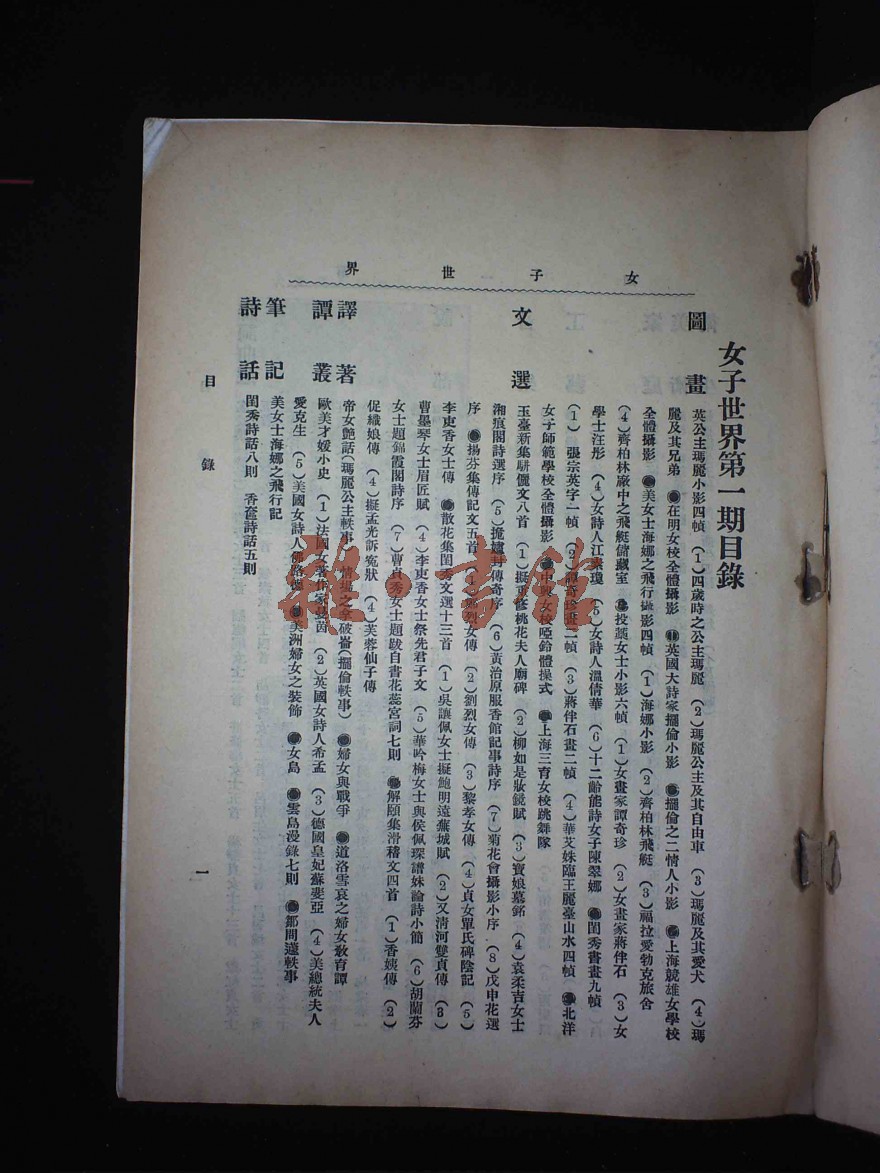 女子世界
女子世界第一期目錄
圖畫 英公主瑪麗小影四幀 (1)四歲時之公主瑪麗 (2)瑪麗公主及其自由車 (3)瑪麗及其愛犬 (4)瑪
麗及其兄弟 ●在明女校全體攝影 ●英國大詩家擺倫小影 ●擺倫之二情人小影 ●上海競雄女學校
全體攝影 ●美女士海娜之飛行攝影四幀 (1)海娜小影 (2)齊柏林飛艇 (3)福拉愛勃克旅舍
(4)齊柏林廠中之飛艇儲藏室 ●投蔬女士小影六幀 (1)女畫家譚奇珍 (2)女畫家蔣伴石 (3)女
學士汪彤 (4)女詩人江 瓊 (5)女詩人溫倩華 (6)十二齡能詩女子陳翠娜 ●閨秀書畫九幀
(1)張宗英字一幀 (2)譚奇珍畫二幀 (3)蔣伴石畫二幀 (4)華芠姝臨王麗臺山水四幀 ●北洋
女子師範學校全體攝影 ●中 女校啞鈴體操式 ●上海三育女校跳舞隊
文選 玉臺新集駢儷文八首 (1)擬重修桃花夫人廟碑 (2)柳如是妝鏡賦 (3)竇娘墓銘 (4)袁柔吉女士
湘痕閣詩選序 (5) 封傳奇序 (6)黃治原服香館記事詩序 (7)菊花會攝影小序 (8)戊申花選
序 ●揚芬集傳記文五首 (1) 烈女傳 (2)劉烈女傳 (3)黎孝女傳 (4)貞女單氏碑陰記 (5)
李吏香女士傳 ●散花集閨秀文選十三首 (1)吳讓佩女士擬鮑明遠蕪城賦 (2)又清河雙貞傳 (3)
曹墨琴女士眉匠賦 (4)李吏香女士祭先君子文 (5)華吟梅女士與侯佩琛譜妹論詩小簡 (6)胡蘭芬
女士題錦霞閣詩序 (7)曹貞秀女士題跋自書花蕊宮詞七則 ●解頤集滑稽文四首 (1)香姨傳 (2)
促織娘傳 (4)擬孟光訴寃狀 (4)芙蓉仙子傳
譯著 帝女艷話(瑪麗公主軼事) 情場之拿破崙(擺倫軼事) ●婦女與戰爭 ●道洛雪哀之婦女敎育譚
譚叢 歐美才媛小史 (1)法國女著作家曼茵 (2)英國女詩人希孟 (3)德國皇妃蘇婁亞 (4)美總統夫人
愛克生 (5)美國女詩人佛路德 ●美洲婦女之裝飾 ●女島 ●雲島漫錄七則 ●鄒問蘧軼事
筆記 美女士海娜之飛行記
詩話 閨秀詩話八則 香奩詩話五則
目錄
一
雅·書館